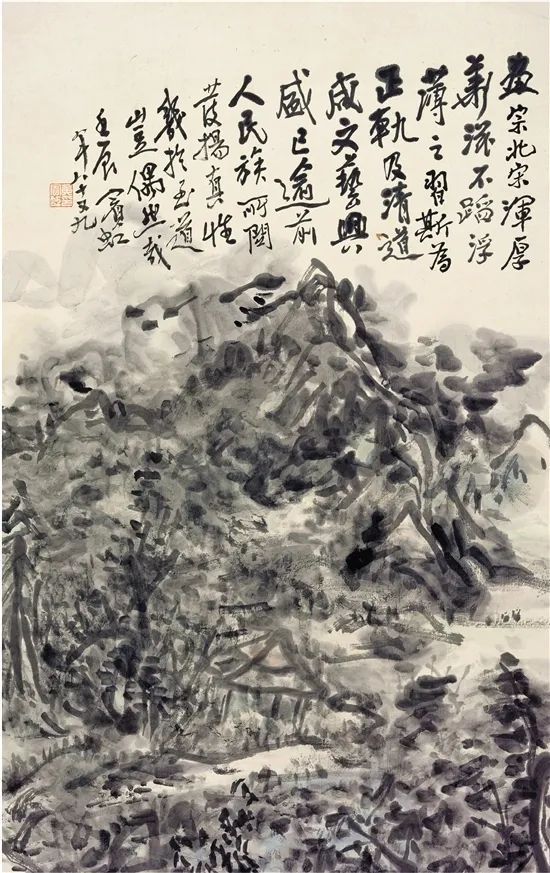 畫宗北宋渾厚
華滋不蹈浮
薄之習斯為
正軌及清道
咸文藝興
盛已逾前
人民族所関
發揚真性
幾於至道
豈偶然哉
壬辰賓虹
年八十又九